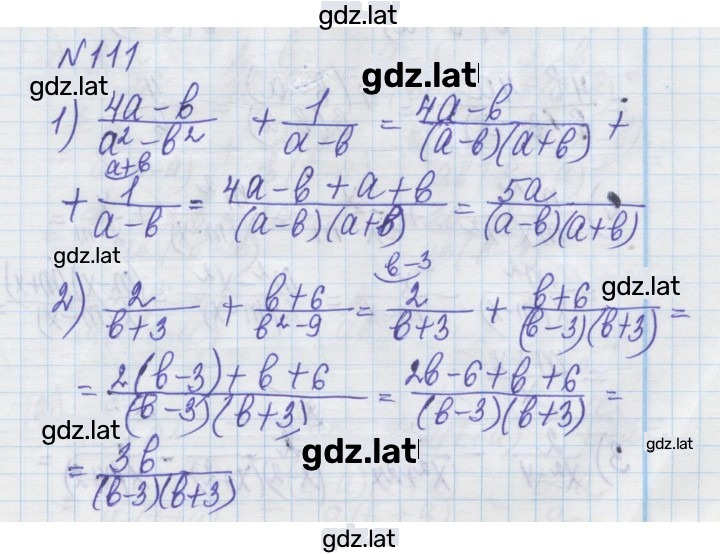 gdz.lat
№111
gdz.lat gdz.lat
1) (4a-b)/(a²-b²) + 1/(a-b) = (4a-b)/((a-b)(a+b)) +
a+b
+ 1/(a-b) = (4a-b+a+b)/((a-b)(a+b)) = 5a/((a-b)(a+b))
gdz.lat
b-3
gdz.lat
2) 2/(b+3) + (b+6)/(b²-9) = 2/(b+3) + (b+6)/((b-3)(b+3)) =
= (2(b-3)+b+6)/((b-3)(b+3)) = (2b-6+b+6)/((b-3)(b+3)) =
gdz.lat gdz.lat gdz.lat
= 3b/((b-3)(b+3))
gdz.lat